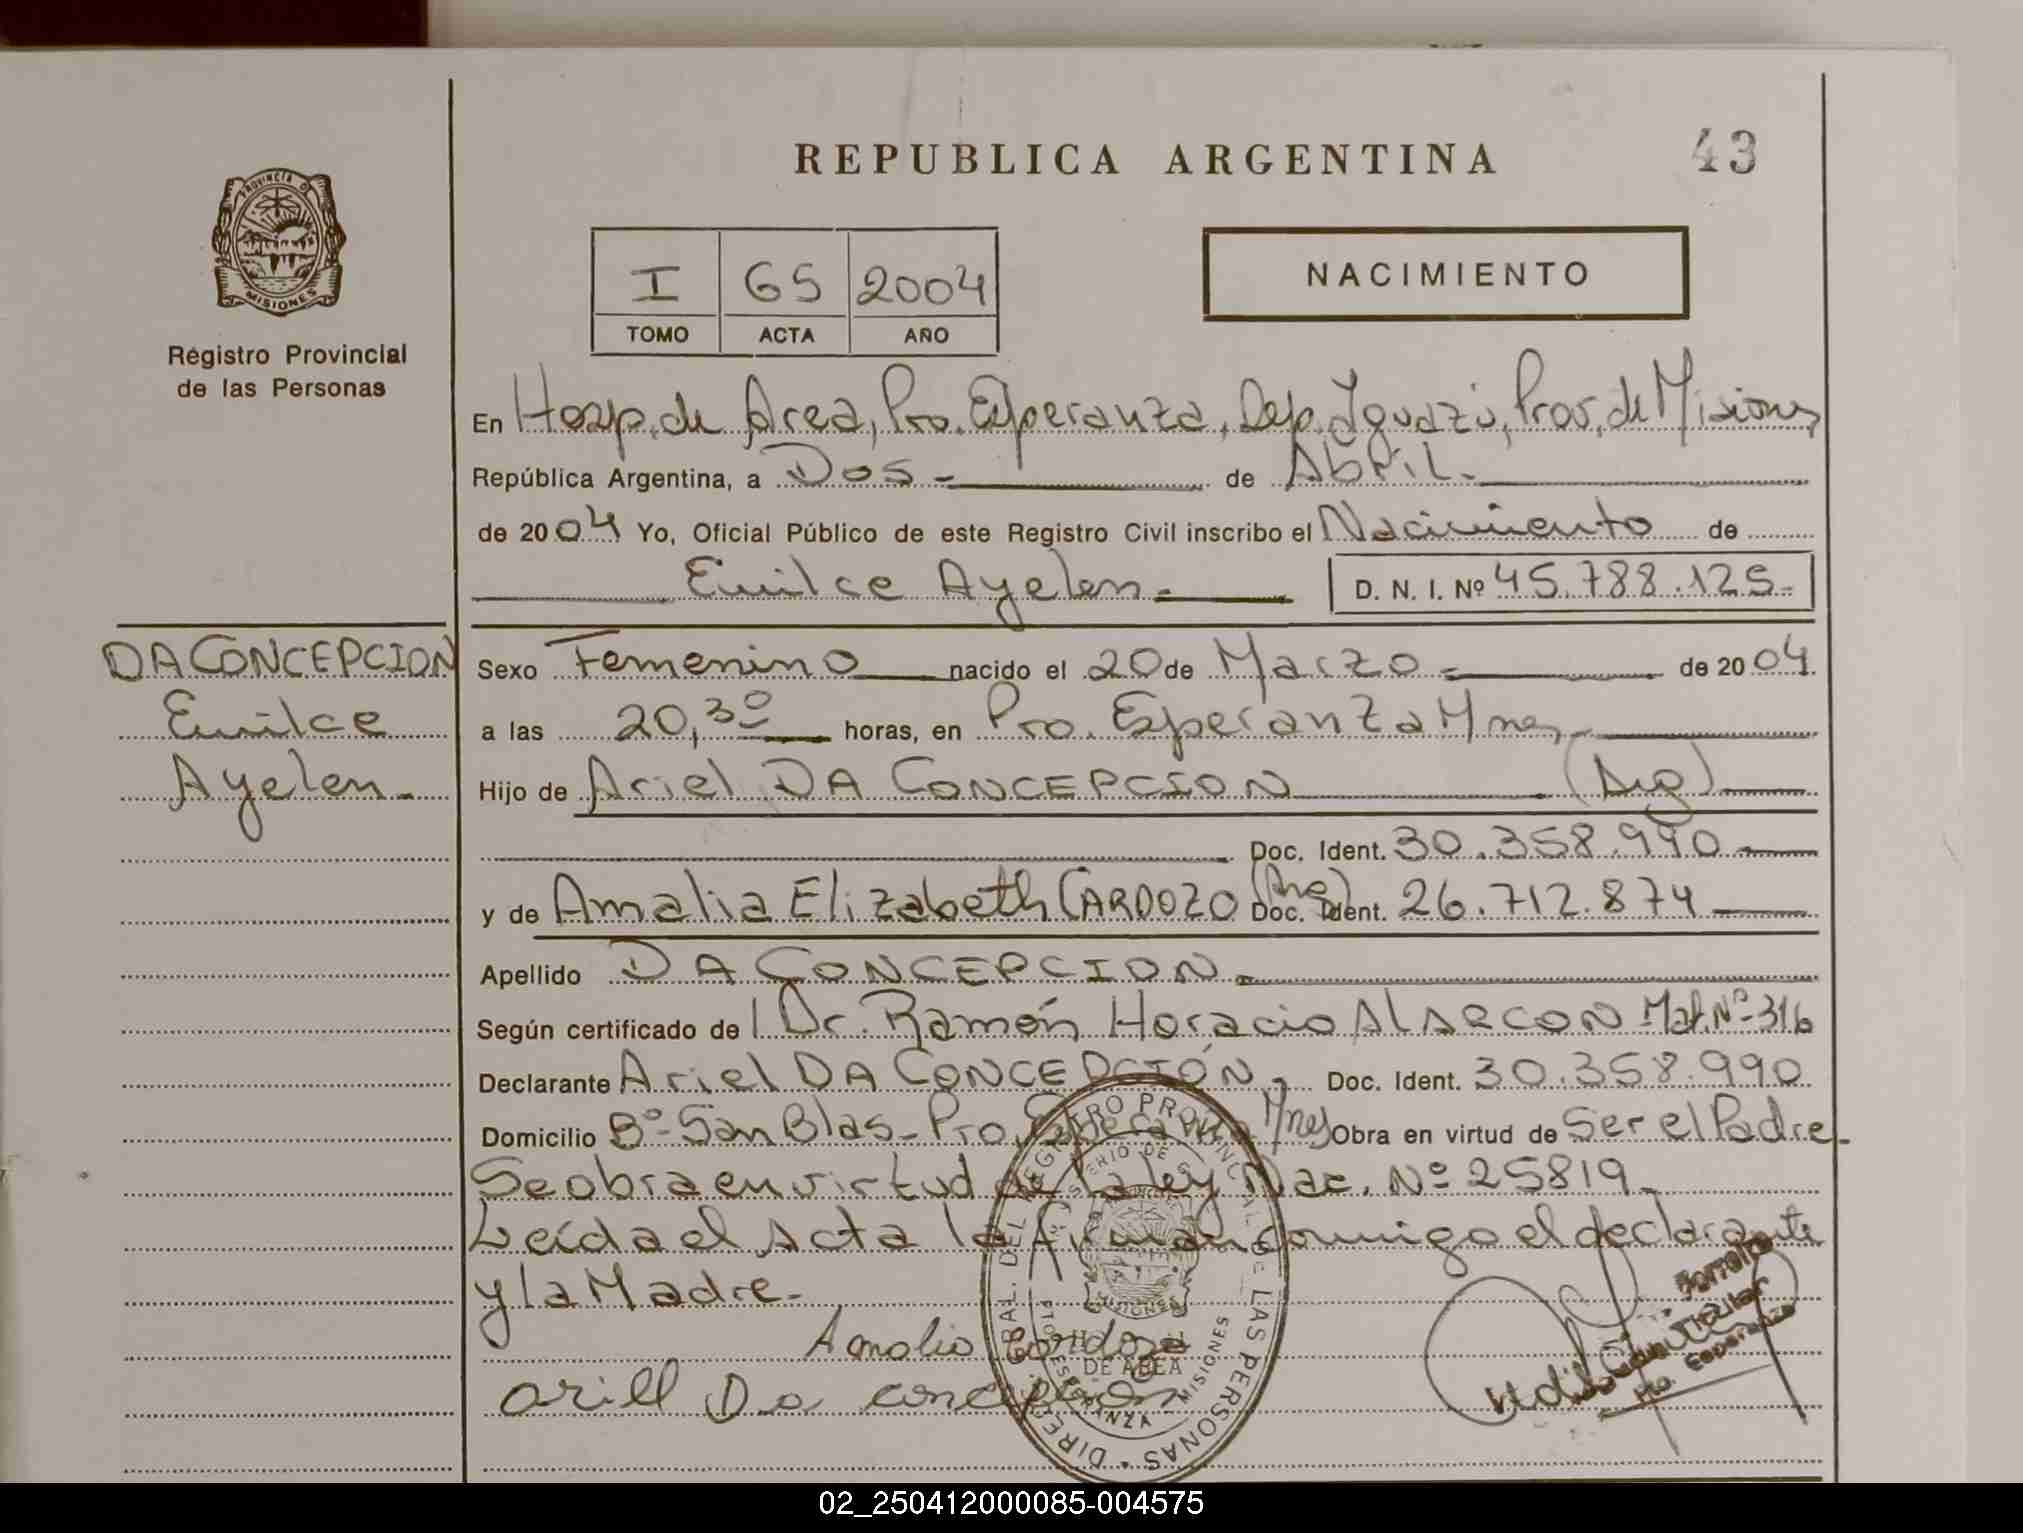 REPUBLICA ARGENTINA
43
PROVINCIA DE
MISIONES
Registro Provincial
de las Personas
I 65 2004
TOMO ACTA AÑO
NACIMIENTO
En Hosp. de Area, Pto. Esperanza, Dep. Iguazú, Prov. de Misiones
República Argentina, a Dos.- de Abril.-
de 2004 Yo, Oficial Público de este Registro Civil inscribo el Nacimiento de
Emilce Ayelen.- D. N. I. Nº 45.788.125.-
DA CONCEPCION
Emilce
Ayelen.-
Sexo Femenino nacido el 20 de Marzo.- de 2004.
a las 20,30 horas, en Pto. Esperanza Mnes.-
Hijo de Ariel DA CONCEPCION (Arg)
Doc. Ident. 30.358.990
y de Amalia Elizabeth CARDOZO (Arg) Doc. Ident. 26.712.874
Apellido DA CONCEPCION.-
Según certificado del Dr. Ramón Horacio ALARCON Mat. Nº 316
Declarante Ariel DA CONCEPCIÓN, Doc. Ident. 30.358.990
Domicilio Bº San Blas - Pto. Esperanza Mnes Obra en virtud de Ser el Padre.-
Se obra en virtud de la ley Nac. Nº 25819.-
Leída el Acta la firman conmigo el declarante
y la Madre.-
Amalia Cardozo
Ariel Da concepcion
DIRECCION GRAL. DEL REGISTRO PROVINCIAL DE LAS PERSONAS
MISIONES
DE AREA
ESPERANZA - MISIONES
Pto. Esperanza
02_250412000085-004575